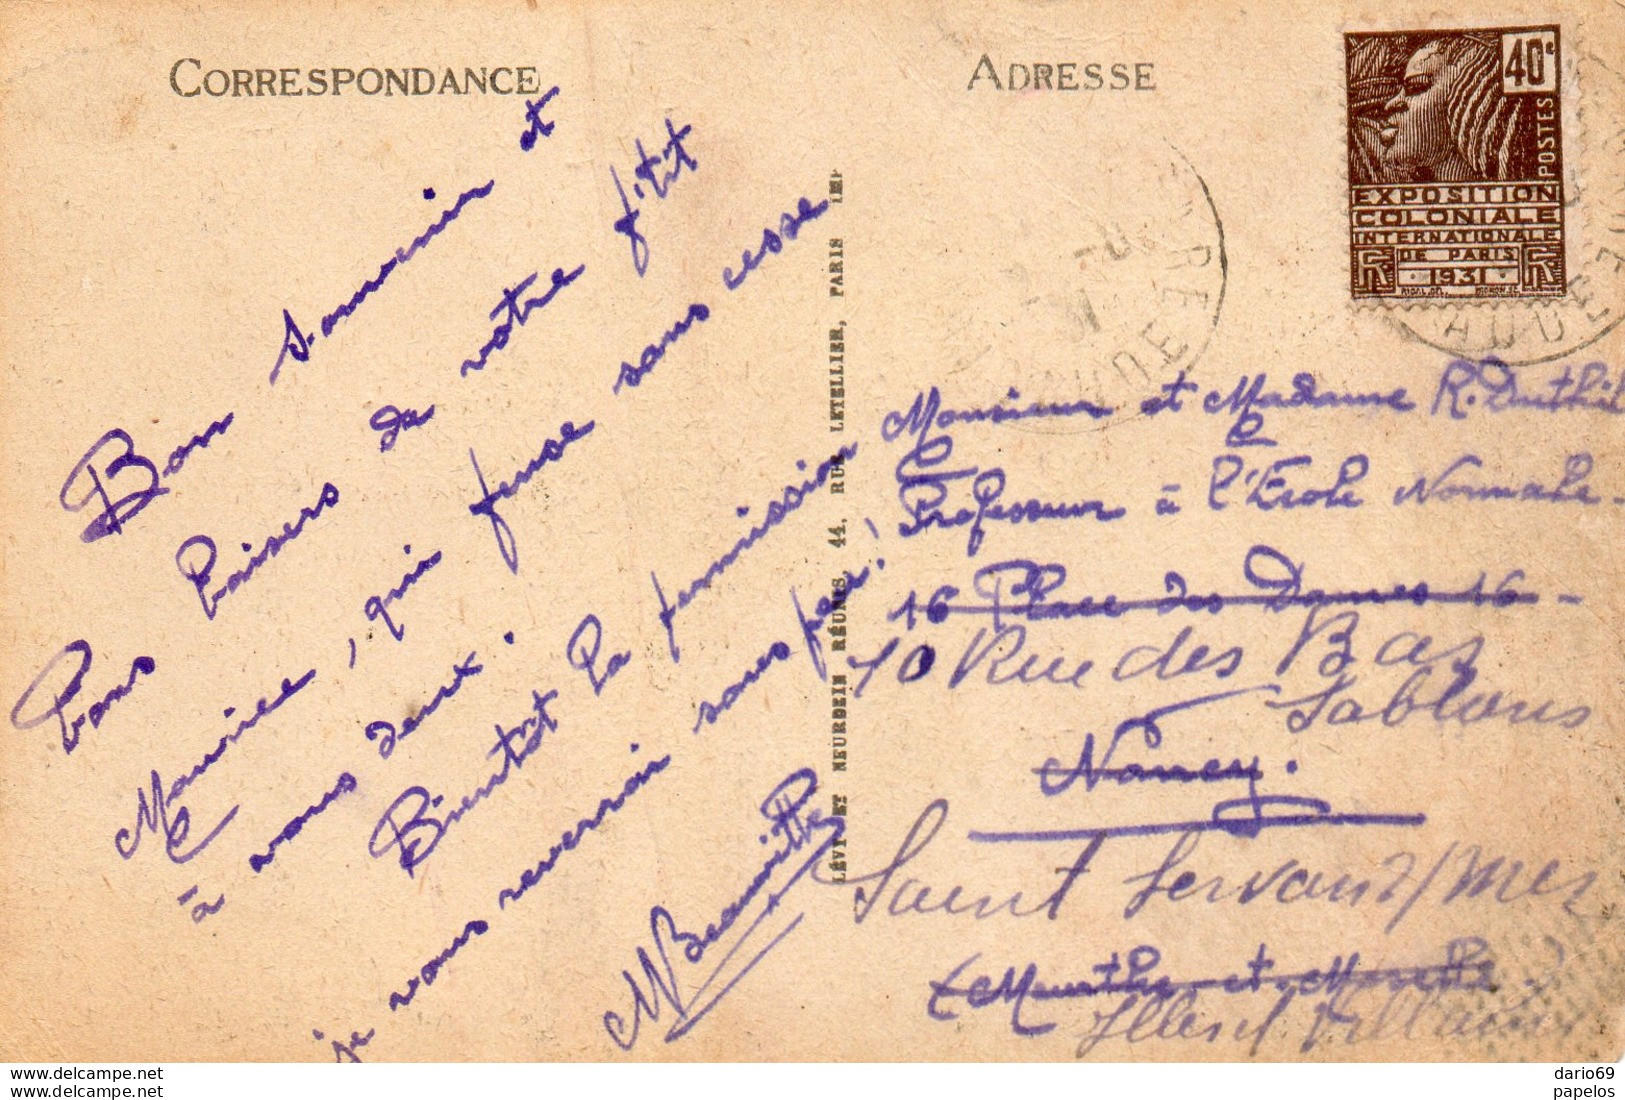 CORRESPONDANCE
Bon souvenir et
bons baisers de votre p'tit
Maurice, qui pense sans cesse
à vous deux.
Bientôt la permission
je vous reverrai sans peu!
MBeauville
LÉVY ET NEURDEIN RÉUNIS, 44, RUE LETELLIER, PARIS IMP
ADRESSE
40c
POSTES
EXPOSITION
COLONIALE
INTERNATIONALE
DE PARIS
1931
AUDE
AUDE
Monsieur et Madame R. Duthil
Professeur à l'Ecole Normale
16 Place des Dames 16
10 Rue des Bas
Sablons
Nancy.
Saint Servan s/mer
(Meurthe et Moselle
Ille et Villaine
delcampe.net
delcampe.net
dario69
papelos